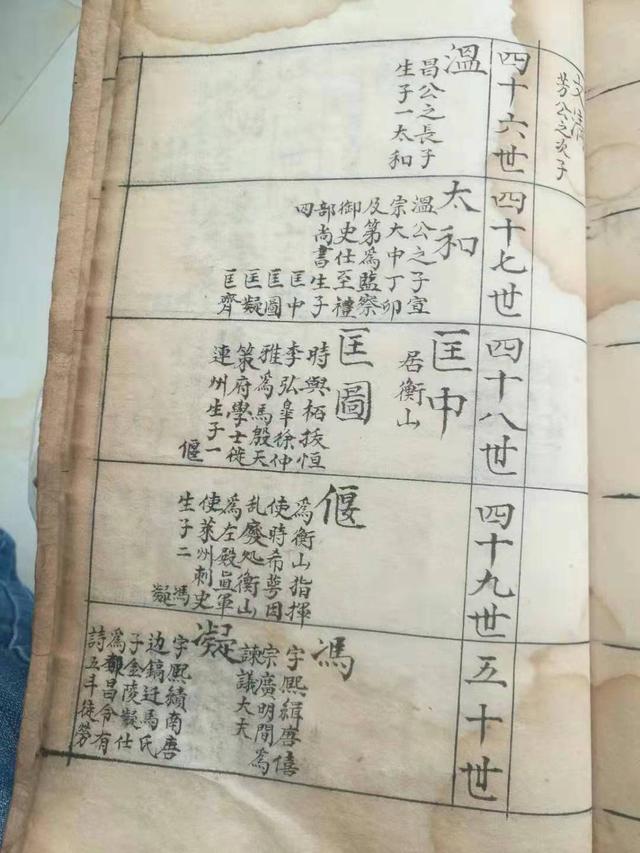 芳公之次子
四十六世
溫
昌公之長子
生子一太和
四十七世
太和
溫公之子宣
宗大中丁卯
及第為監察
御史仕至禮
部尚書生子
四
匡中
匡圖
匡凝
匡齊
四十八世
匡中
居衡山
匡圖
時與栢拔恒
李弘臯徐仲
雅為馬殷天
策府學士徙
連州生子一
偃
四十九世
偃
為衡山指揮
使時希萼因
乱廢处衡山
為左殿直軍
使萊州刺史
生子二
馮
凝
五十世
馮
字熙緝唐僖
宗廣明間為
諫議大夫
凝
字熙績南唐
边鎬迁馬氏
子金陵凝仕
為都昌令有
詩五斗徒勞